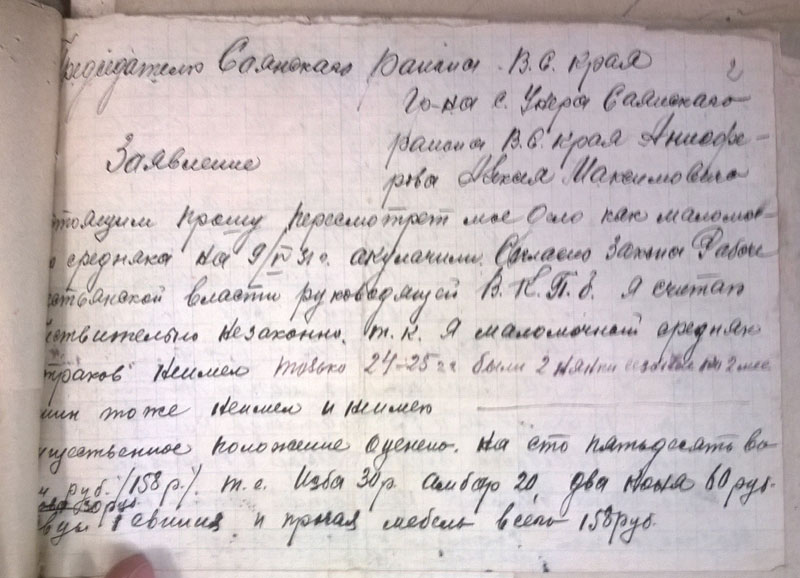 Председателю Саянского района. В.С. края
2
Гр-на с. Унера Саянского
района В.С. края Аниофе-
Заявление
рова Авкия Максимовича
стоящим прошу пересмотрет мое дело как маломощ-
о средняка на 9/IV 31 г. акулачили. Согласно Закона Рабоче
стьянской власти руководящей В.К.П.б. я считаю
йствительно незаконно. т.к. я маломочный средняк
траков неимел только 24-25 г.г. были 2 няньки на 2 мес
шин тоже неимел и неимею
ущественное положение оценено. на сто пятьдесять во
руб. /158 р./. т.е. Изба 30 р. амбар 20 два коня 60 руб.
овцы 1 свиния и прочая мебель всего 158 руб.